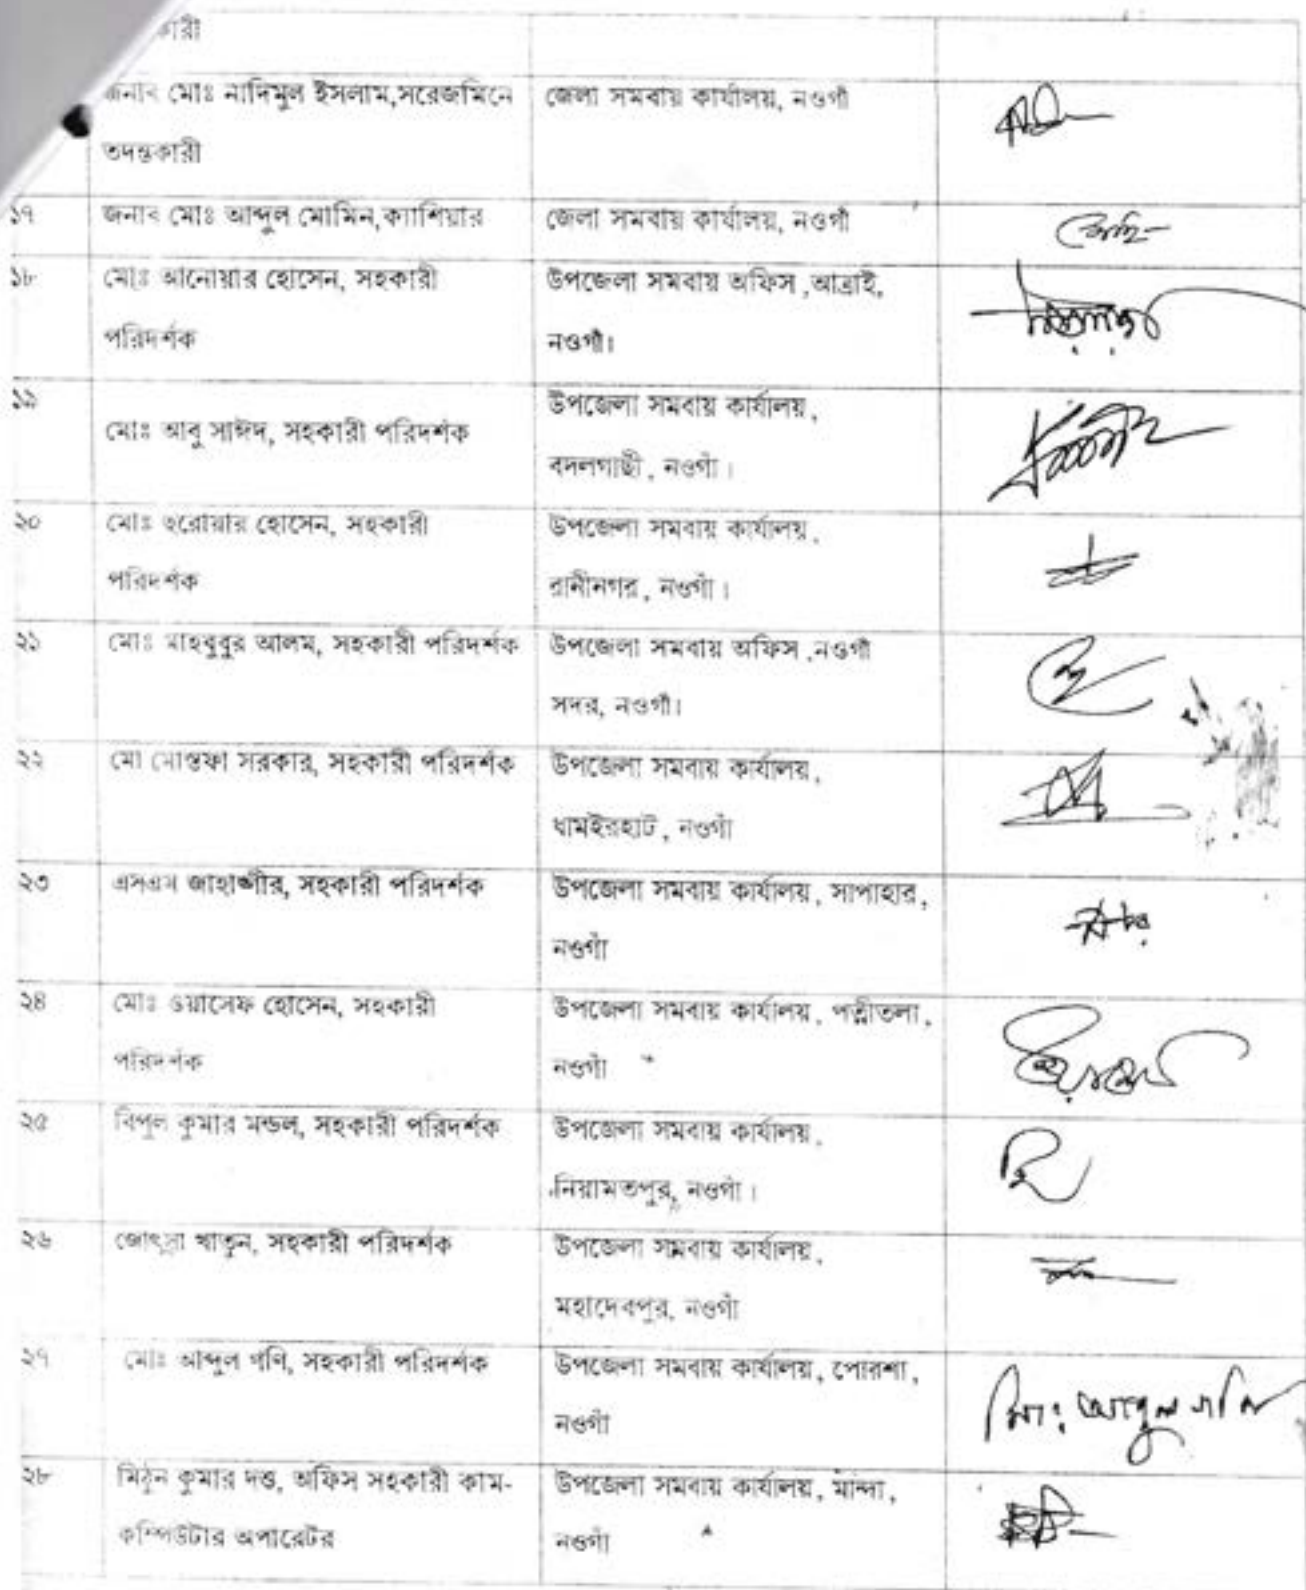 কারী
জনাব মোঃ নাদিমুল ইসলাম,সরেজমিনে
তদন্তকারী
জেলা সমবায় কার্যালয়, নওগাঁ
১৭
জনাব মোঃ আব্দুল মোমিন,ক্যাশিয়ার
জেলা সমবায় কার্যালয়, নওগাঁ
১৮
মোঃ আনোয়ার হোসেন, সহকারী
পরিদর্শক
উপজেলা সমবায় অফিস ,আত্রাই,
নওগাঁ।
১৯
মোঃ আবু সাঈদ, সহকারী পরিদর্শক
উপজেলা সমবায় কার্যালয়,
বদলগাছী , নওগাঁ ।
২০
মোঃ হোসেন, সহকারী
পরিদর্শক
উপজেলা সমবায় কার্যালয়,
রানীনগর , নওগাঁ ।
২১
মোঃ মাহবুবুর আলম, সহকারী পরিদর্শক
উপজেলা সমবায় অফিস ,নওগাঁ
সদর, নওগাঁ।
২২
মো মোস্তফা সরকার, সহকারী পরিদর্শক
উপজেলা সমবায় কার্যালয়,
ধামইরহাট , নওগাঁ
২৩
এসএম জাহাঙ্গীর, সহকারী পরিদর্শক
উপজেলা সমবায় কার্যালয়, সাপাহার,
নওগাঁ
২৪
মোঃ ওয়াসেফ হোসেন, সহকারী
পরিদর্শক
উপজেলা সমবায় কার্যালয়, পত্নীতলা,
নওগাঁ
২৫
বিপুল কুমার মন্ডল, সহকারী পরিদর্শক
উপজেলা সমবায় কার্যালয়,
নিয়ামতপুর, নওগাঁ ।
২৬
জোৎস্না খাতুন, সহকারী পরিদর্শক
উপজেলা সমবায় কার্যালয়,
মহাদেবপুর, নওগাঁ
২৭
মোঃ আব্দুল গণি, সহকারী পরিদর্শক
উপজেলা সমবায় কার্যালয়, পোরশা,
নওগাঁ
মোঃ আব্দুল গনি
২৮
মিঠুন কুমার দত্ত, অফিস সহকারী কাম-
কম্পিউটার অপারেটর
উপজেলা সমবায় কার্যালয়, মান্দা,
নওগাঁ